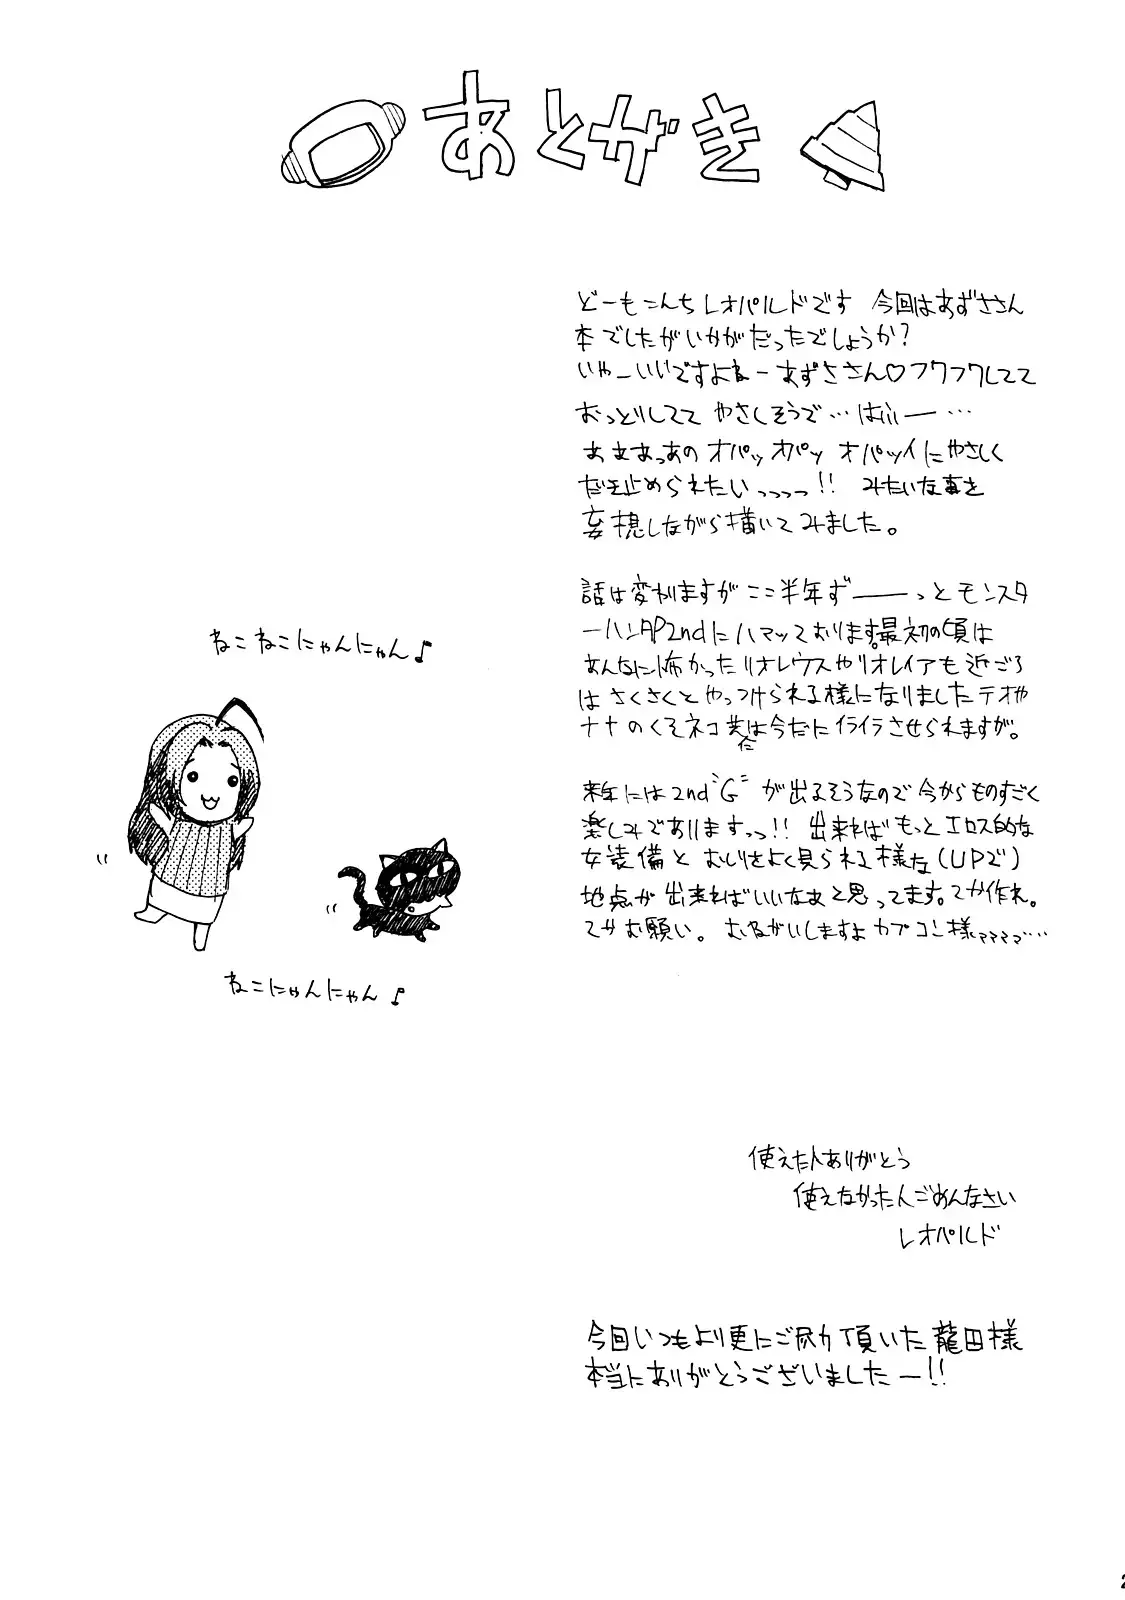 あとがき
どーもこんちレオパルドです 今回はあずささん
本でしたがいかがだったでしょうか？
いやーいいですよねーあずささん♡フワフワしてて
おっとりしてて やさしそうで…はふぃー…
あぁまっあの オパッ オパッ オパッイにやさしく
だき止められたいっっっっ!! みたいな事を
妄想しながら描いてみました。
話は変わりますがここ半年ず――っとモンスタ
ーハンタP2ndにハマッております。最初の頃は
あんなに怖かったリオレウスやリオレイアも近ごろ
はさくさくとやっつけられる様になりましたテオや
ナナのくそネコ共は今だにイライラさせられますが。
来年には2nd"G"が出るそうなので今からものすごく
楽しみでありますっっ!! 出来ればもっとエロス的な
女装備とおしりをよく見られる様な(UPで)
地点が出来ればいいなぁと思ってます。てか作れ。
てかお願い。 おねがいしますよカプコン様ァァァァ……
ねこねこにゃんにゃん♪
ねこにゃんにゃん♪
使えた人ありがとう
使えなかった人ごめんなさい
レオパルド
今回いつもより更にご尽力頂いた龍田様
本当にありがとうございましたー!!